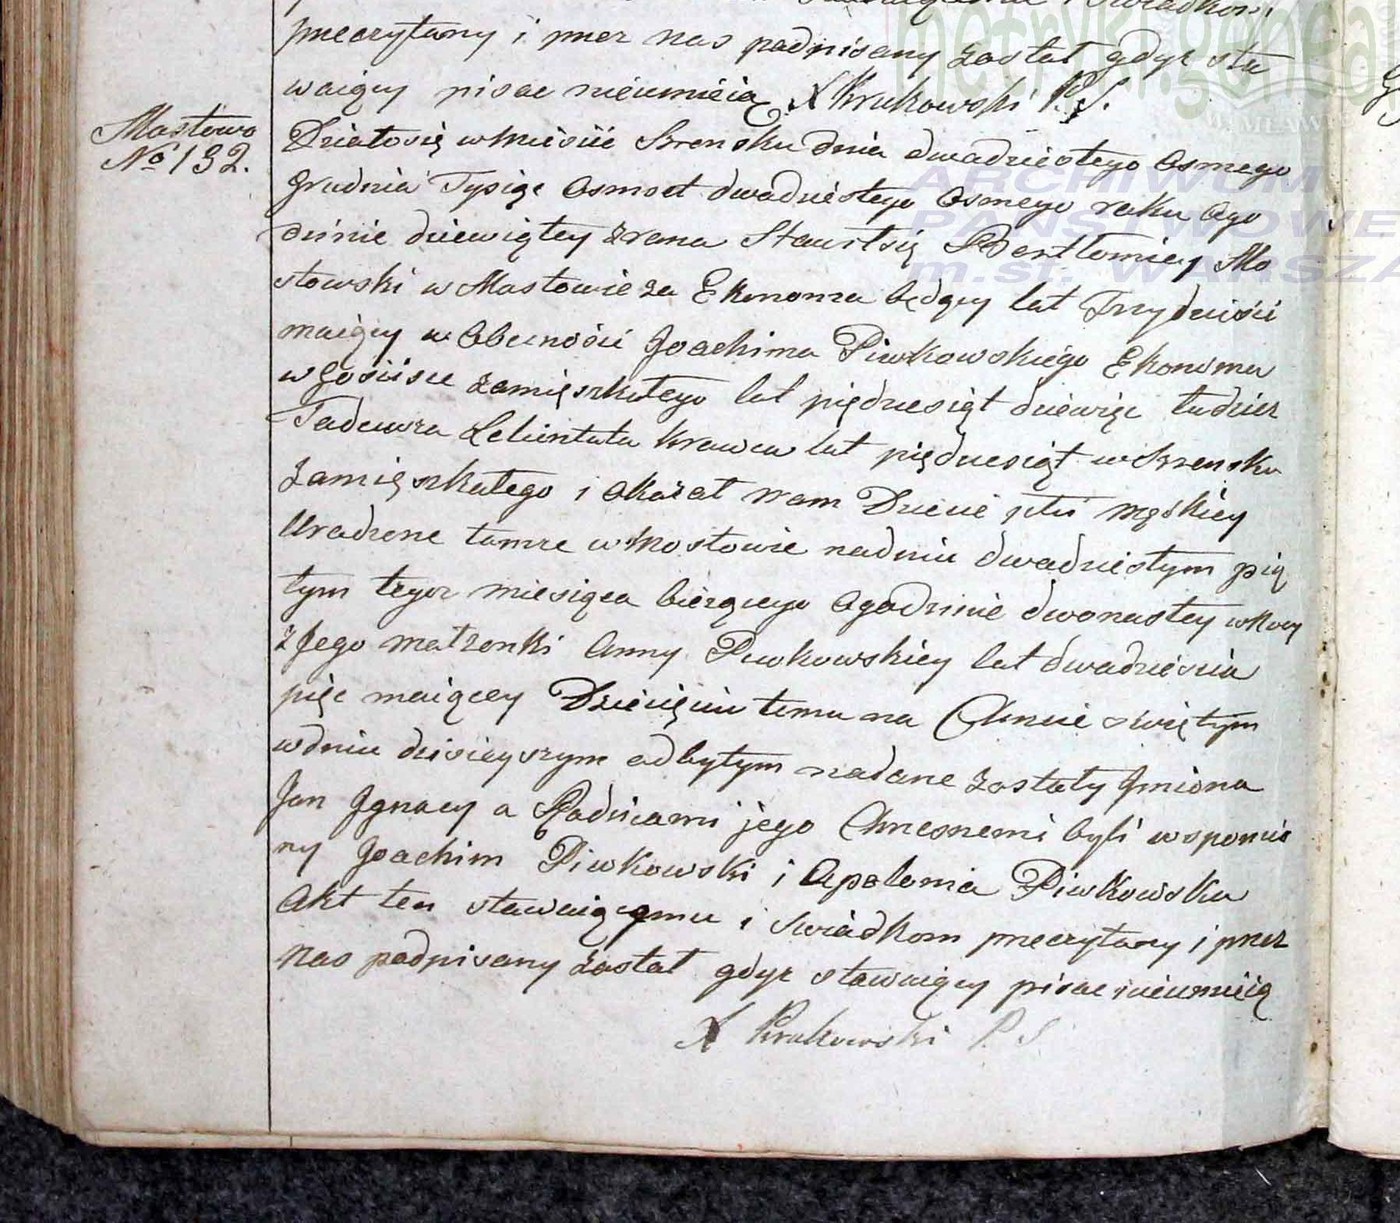 przeczytany i przez nas podpisany został gdyż sta
waiący pisac nieumieią X Krukowski P.S.
Mostowo
No 132.
Działosię w Mieście Szrensku dnia dwudziestego Osmego
Grudnia Tysiąc Osmset dwudziestego Osmego roku Ogo
dzinie dziewiątey zrana Stawiłsię Bartłomiey Mo
stowski w Mostowie za Ekonoma będący lat Trzydzieści
maiący w Obecności Joachima Piwkowskiego Ekonoma
w zamięszkałego lat pięćdziesiąt dziewięc tudzież
Tadeusza Krawca lat pięćdziesiąt w Szrensku
zamięszkałego i okazał nam Dziecie płci męskiey
Urodzone tamże w Mostowie nadniu dwudziestym pią
tym tegoż miesiąca bieżącego Ogodzinie dwonastey wnocy
z Jego małżonki Anny Piwkowskiey lat dwadzieścia
pięc maiącey Dziecięciu temu na Chrzcie świętym
wdniu dzisieyszym odbytym nadane zostały Jmiona
Jan Jgnacy a Rodzicami jego Chrzesnemi byli wspomnio
ny Joachim Piwkowski i Apolonia Piwkowska
Akt ten stawaiącemu i świadkom przeczytany i przez
Nas podpisany został gdyż stawaiący pisac nieumieią
X Krukowski P S
metryki.genea
W MŁAWIE
ARCHIWUM
PAŃSTWOWE
m.st. WARSZA